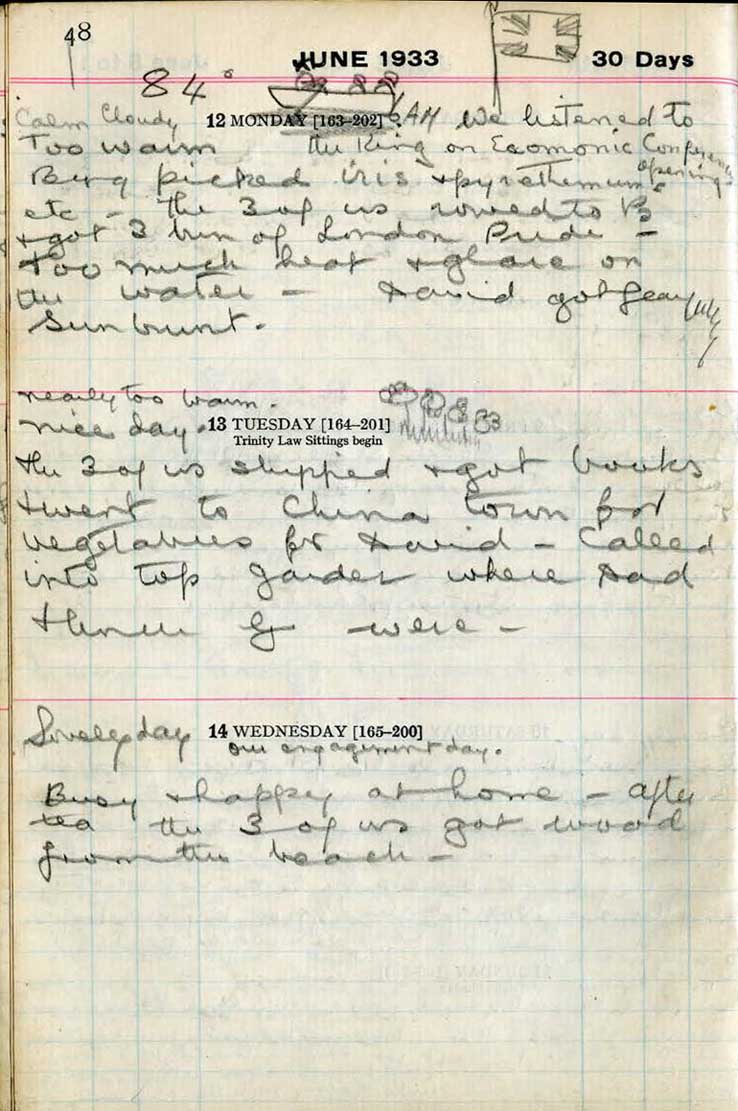 48
JUNE 1933 30 Days
84°
Calm Cloudy 12 MONDAY [163–202] 6 AM We listened to
Too warm the King on Economic Conference
opening
picked iris & pyrethemums
etc – the 3 of us rowed to
& got 3 bun of London Pride –
too much heat & glare on
the water – David got fearfully
Sunburnt.
nearly too warm.
nice day. 13 TUESDAY [164–201]
Trinity Law Sittings begin
the 3 of us shopped & got books
& went to China town for
vegetables for David – Called
into top garden where Dad
were –
Lovely day 14 WEDNESDAY [165–200]
our engagement day.
Busy & happy at home – after
tea the 3 of us got wood
from the beach –